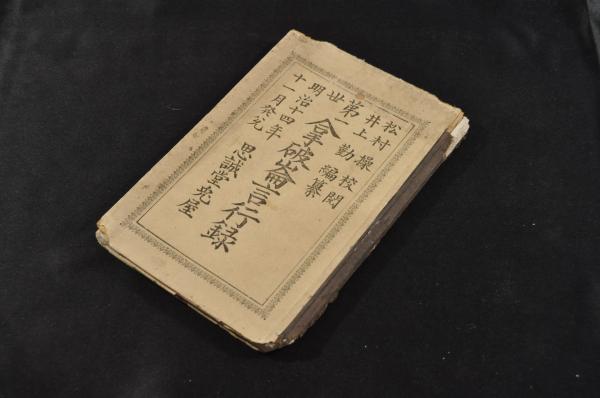 松村操 校閲
井上勤 編纂
第一世 拿破崙言行録
明治十四年
十一月発兌 思誠堂兎屋